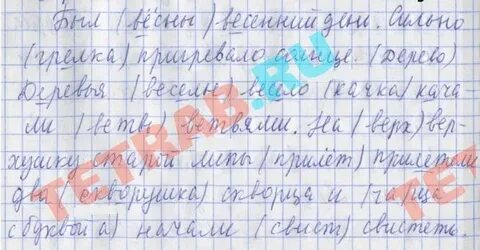 Был (вёсны) весенний день. Сильно
(грелка) пригревало солнце. (Дерево)
Деревья (веселье) весело (качка) кача-
ли (ветвь) ветвями. На (верх) вер-
хушку старой липы (прилёт) прилетели
два (скворушка) скворца и (
с буквой а) начали (свист) свистеть.
TETRAB.RU
TETRAB.RU